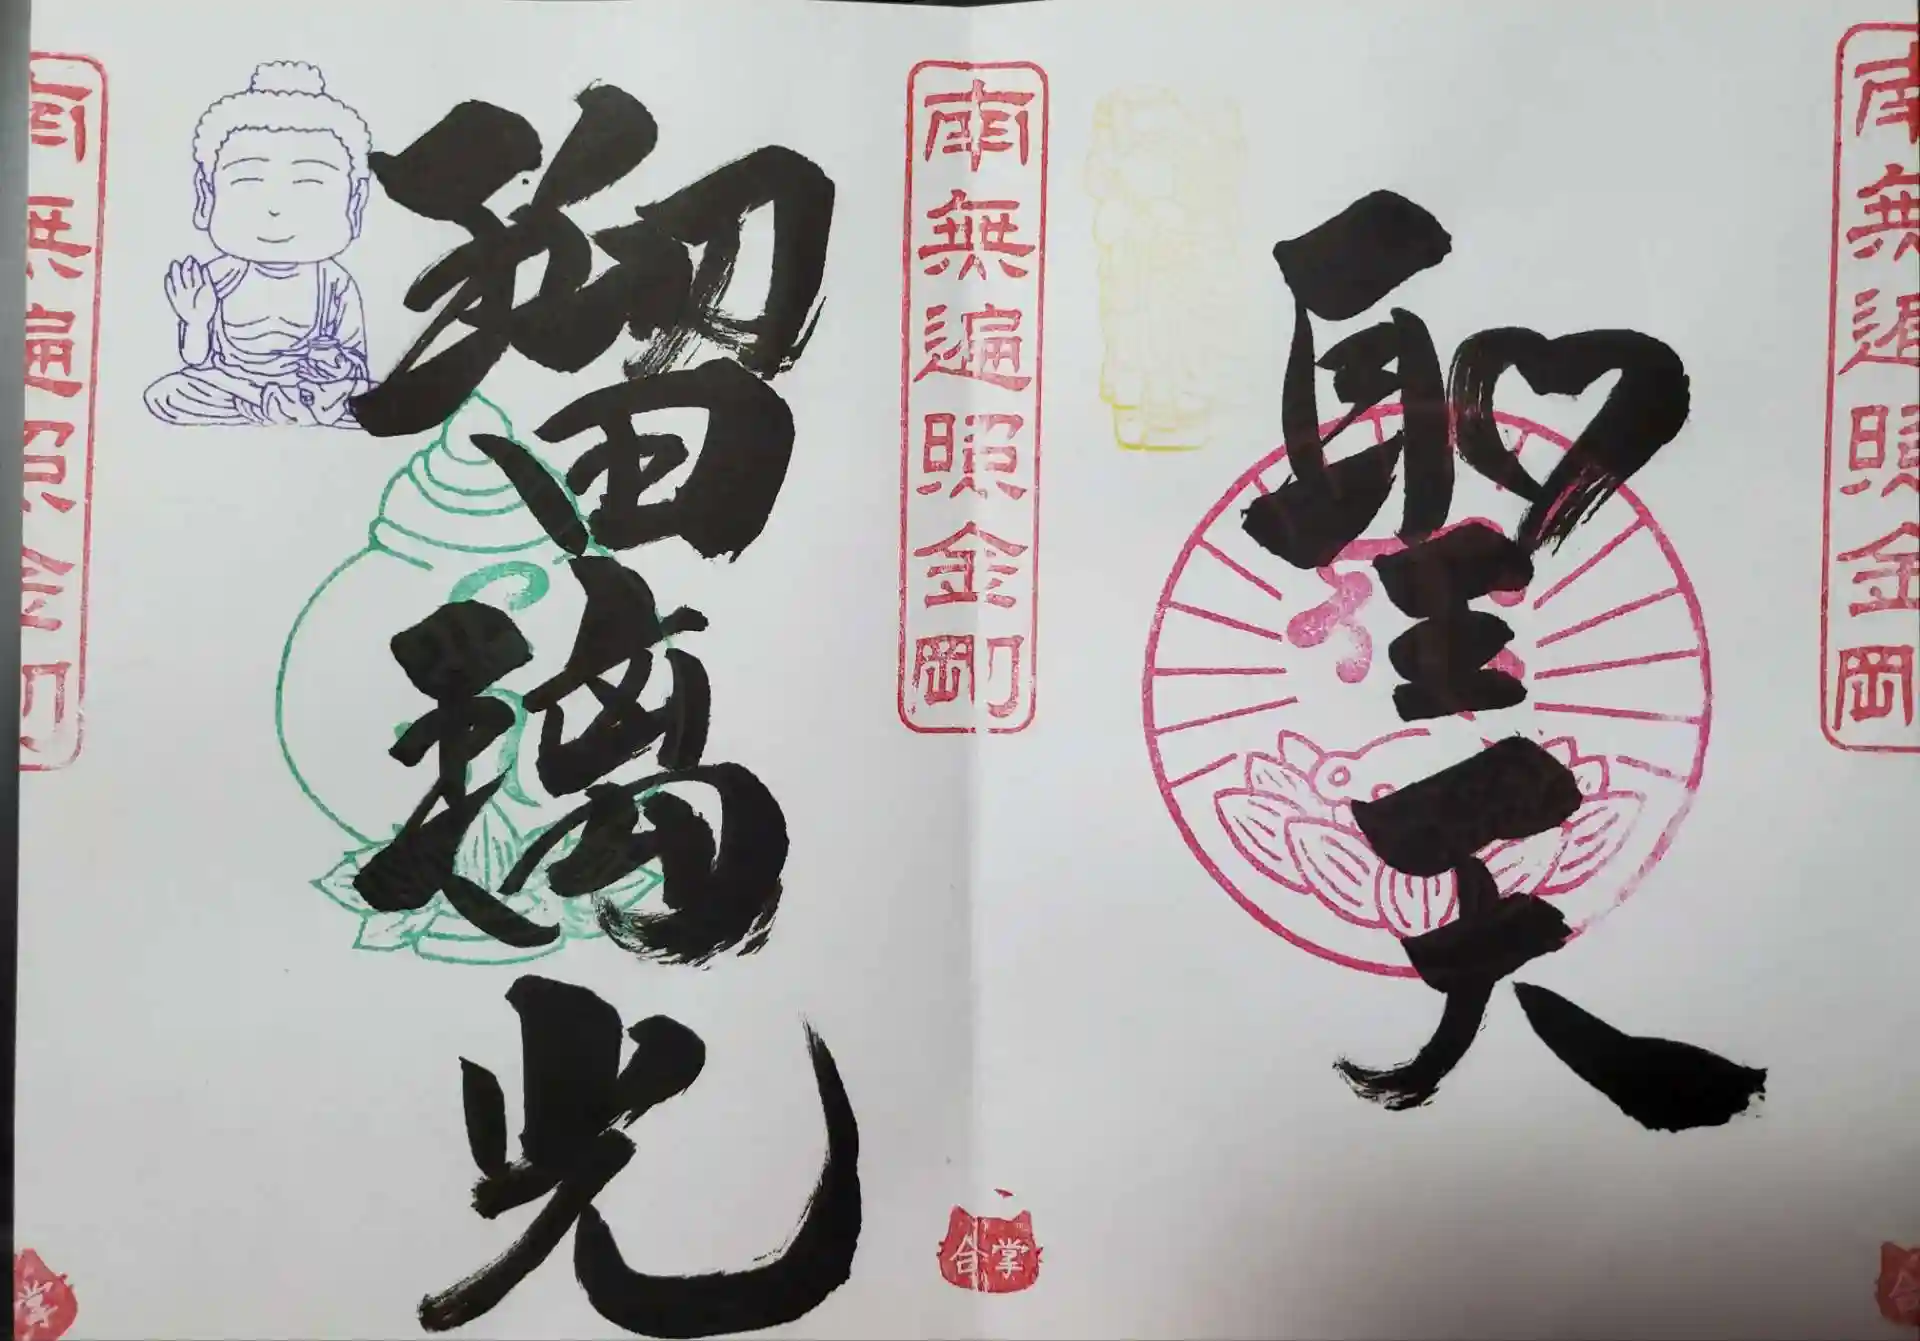 南無遍照金剛
聖天
南無遍照金剛
合掌
瑠璃光
南無遍照金剛
掌